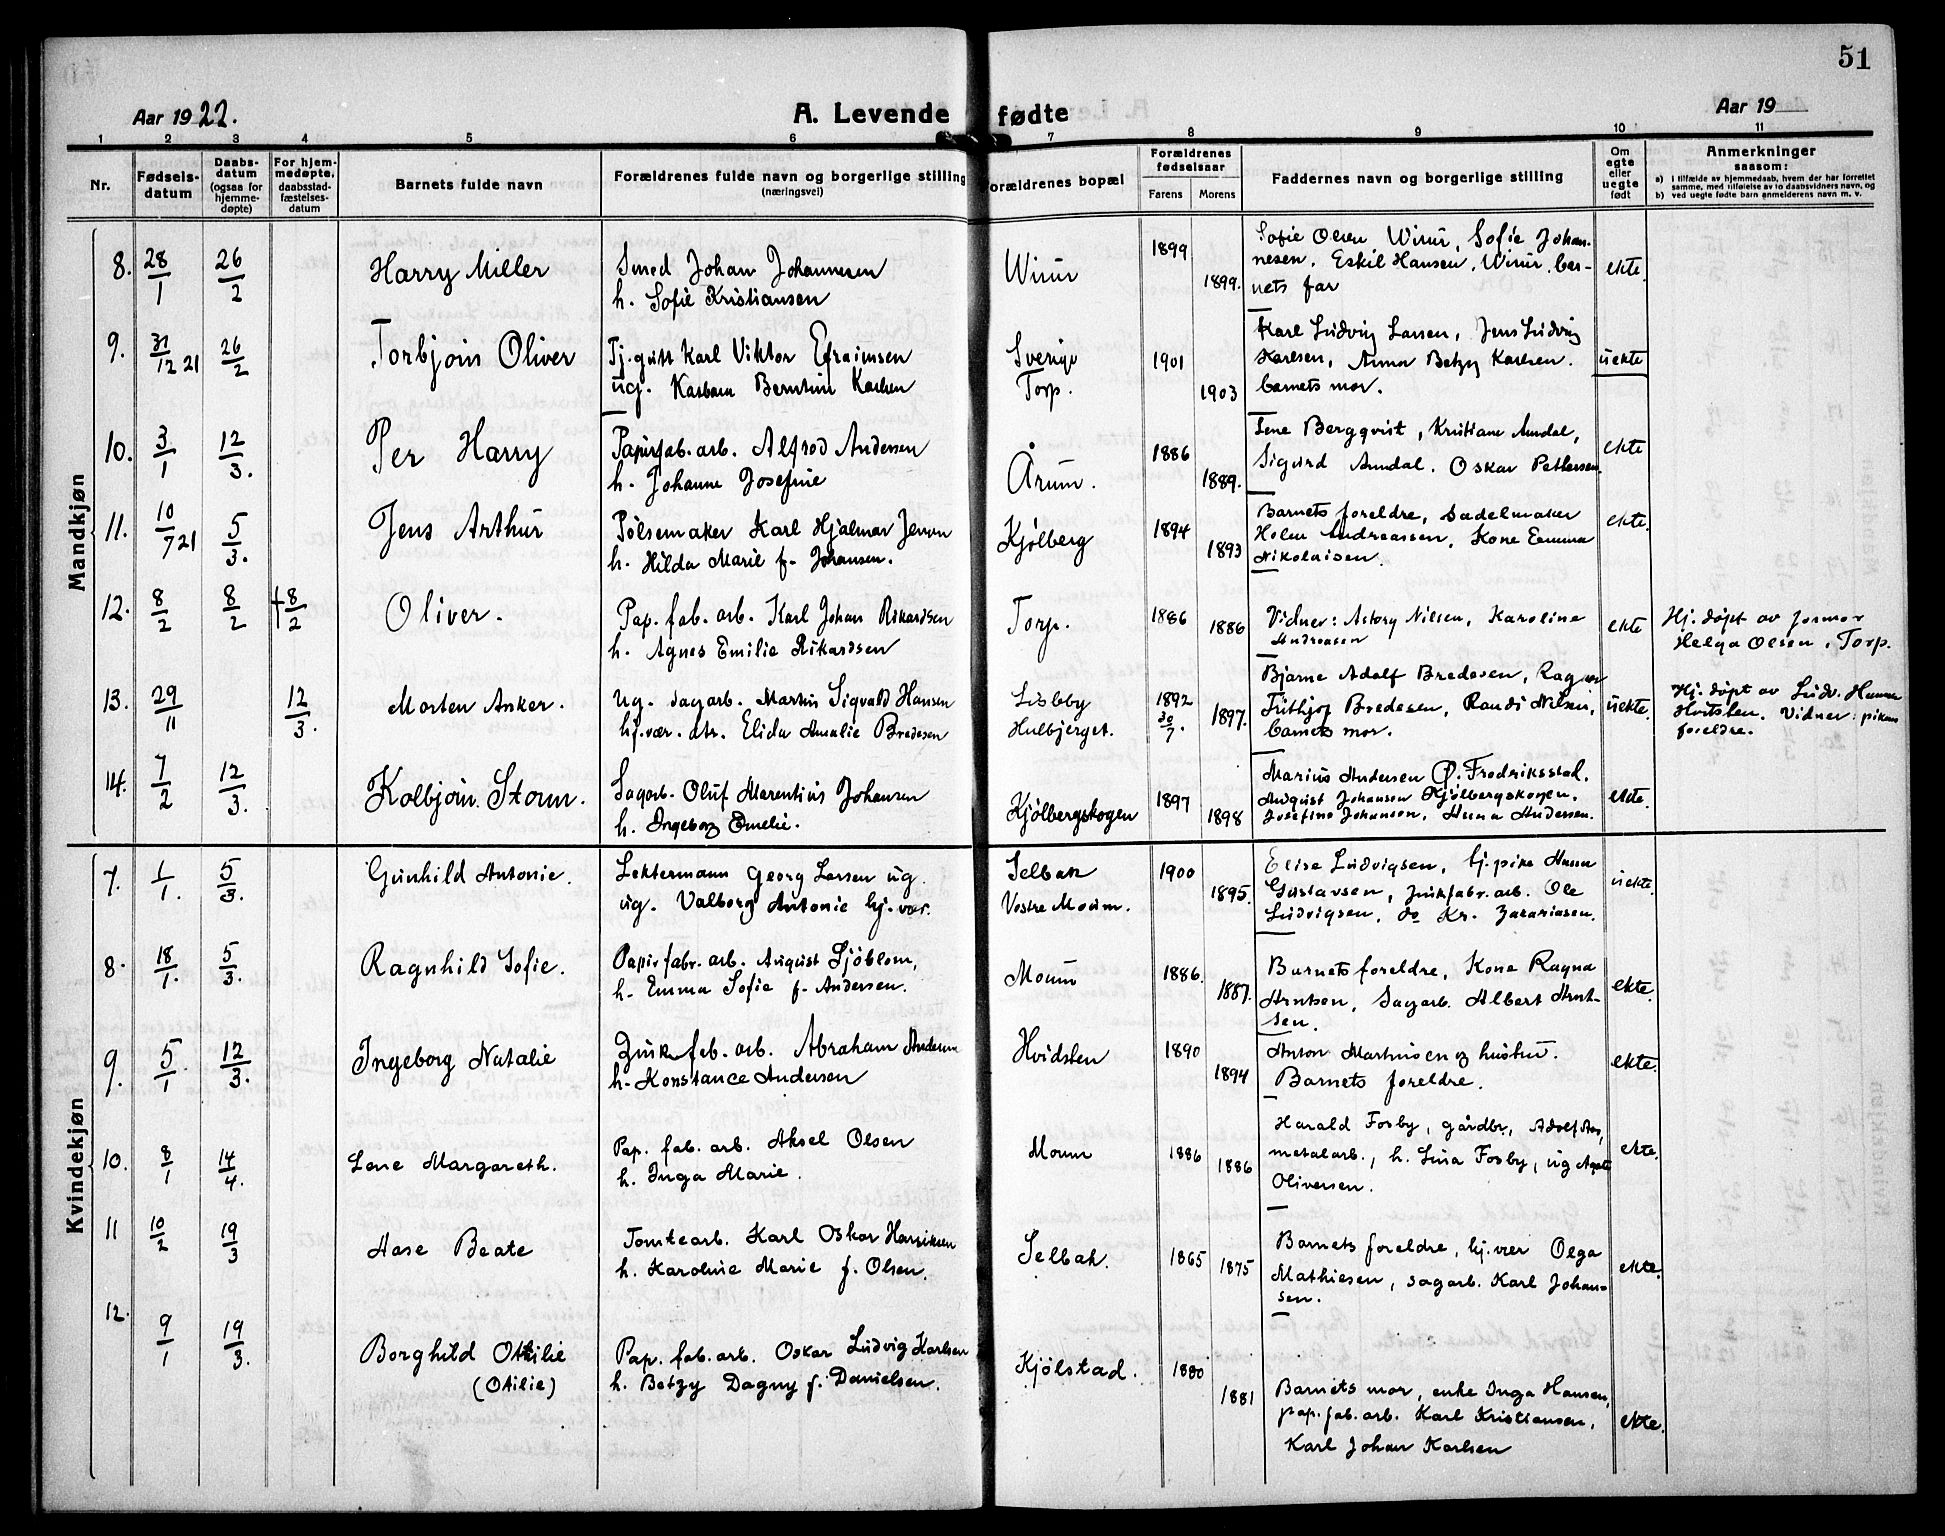 51
Aar 1922.
A. Levende fødte
Aar 19
1 2 3 4 5 6 7 8 9 10 11
Nr.
Fødsels-
datum
Daabs-
datum
(ogsaa for
hjemme-
døpte)
For hjem-
medøpte,
daabsstad-
fæstelses-
datum
Barnets fulde navn
Forældrenes fulde navn og borgerlige stilling
(næringsvei)
Forældrenes bopæl
Forældrenes
fødselsaar
Farens Morens
Faddernes navn og borgerlige stilling
Om
egte
eller
uegte
født
Anmerkninger
saasom:
a) i tilfælde av hjemmedaab, hvem der har forrettet
samme, med tilføielse av to daabsvidners navn, og
b) ved uegte fødte barn anmelderens navn m. v.
Mandkjøn
8. 28/1 26/2 Harry Miller
Smed Johan Johannesen
h. Sofie Kristiansen
Wiur
1899
1899.
Sofie Olsen Wiur, Sofie Johan-
nesen, Eskil Hansen, Wiur, bar-
nets far
ekte.
9. 31/12 21 26/2 Torbjørn Oliver
Tj.gutt Karl Viktor Efraimsen
ug. Karbara Berntine Karlsen
Sverige
Torp.
1901
1903
Karl Ludvig Larsen, Jens Ludvig
Karlsen, Anna Betzy Karlsen.
barnets mor.
uekte
10. 3/1 12/3. Per Harry
Papirfab. arb. Alfred Andersen
h. Johanne Josefine
Årum.
1886
1889.
Tene Bergqvist, Kristiane Amdal,
Sigurd Amdal. Oskar Pettersen.
ekte
11. 10/7 21 5/3. Jens Arthur
Pølsemaker Karl Hjalmar Jensen
h. Hilda Marie f. Johansen.
Kjølberg
1894
1893
Barnets foreldre, Sadelmaker
Holm Andreassen, Kone Emma
Nikolaisen.
ekte.
12. 8/2 8/2 † 8/2 Oliver.
Pap. fab. arb. Karl Johan Rikardsen
h. Agnes Emilie Rikardsen
Torp.
1886
1886
Vidner: Astory Nilsen, Karoline
Andreasen
ekte
Hj. døpt av formor
Helga Olsen, Torp.
13. 29/11 12/3. Morten Anker.
ug. sagarb. Martin Sigvald Hansen
hj. vær. dtr. Elida Amalie Bredesen
Lisbby
Hulbjerget.
1892
30/7.
1897.
Bjarne Adolf Bredesen, Ragnar
Frithjof Bredesen, Randi Nilsen,
barnets mor.
uekte.
Hj. døpt av Ludv. Hansen
Hvitsten. Vidner: pikens
foreldre.
14. 7/2 12/3. Kolbjørn Storm.
Sagarb. Oluf Marentius Johansen
h. Ingeborg Emelie.
Kjølbergskogen
1897
1898
Marius Andersen Ø. Fredriksstad,
Andqvist Johansen Kjølbergskogen,
Josefine Johansen, Anna Andersen.
ekte.
Kvindekjøn
7. 1/1. 5/3. Gunhild Antonie.
Lektermann Georg Larsen ug.
ug. Valborg Antonie hj. vær.
Selbak
Vestre Moum.
1900
1895.
Elise Ludvigsen, tj. pike Hanna
Gustavsen, Zinkfabr. arb. Ole
Ludvigsen, do Kr. Zakariasen.
uekte.
8. 18/1. 5/3. Ragnhild Sofie.
Papirfabr. arb. August Sjöblom,
h. Emma Sofie f. Andersen.
Moum
1886.
1887.
Barnets foreldre, Kone Ragna
Arntsen, Sagarb. Albert Arnt-
sen.
ekte.
9. 5/1 12/3. Ingeborg Natalie
Zinkfab. arb. Abraham Andersen
h. Konstance Andersen
Hvidsten
1890
1894
Anton Martinsen og hustru.
Barnets foreldre.
ekte.
10. 8/1 14/4. Lene Margareth.
Pap. fab. arb. Aksel Olsen
h. Inga Marie.
Moum
1886
1886
Harald Fosby, gårdbr., Adolf Aas,
metalarb., h. Lina Fosby, ug Agate
Oliversen.
ekte.
11 10/2 19/3 Aase Beate
Tomtearb. Karl Oskar Henriksen
h. Karoline Marie f. Olsen.
Selbak.
1865
1875
Barnets foreldre, hj. vær Olga
Mathiesen, sagarb. Karl Johan-
sen.
ekte.
12. 9/1 19/3. Borghild Ottilie
(Otilie)
Pap. fab. arb. Oskar Ludvig Karlsen
h. Betzy Dagny f. Danielsen.
Kjølstad.
1880
1881
Barnets mor, enke Inga Hansen,
pap. fab. arb. Karl Kristiansen,
Karl Johan Karlsen
ekte.